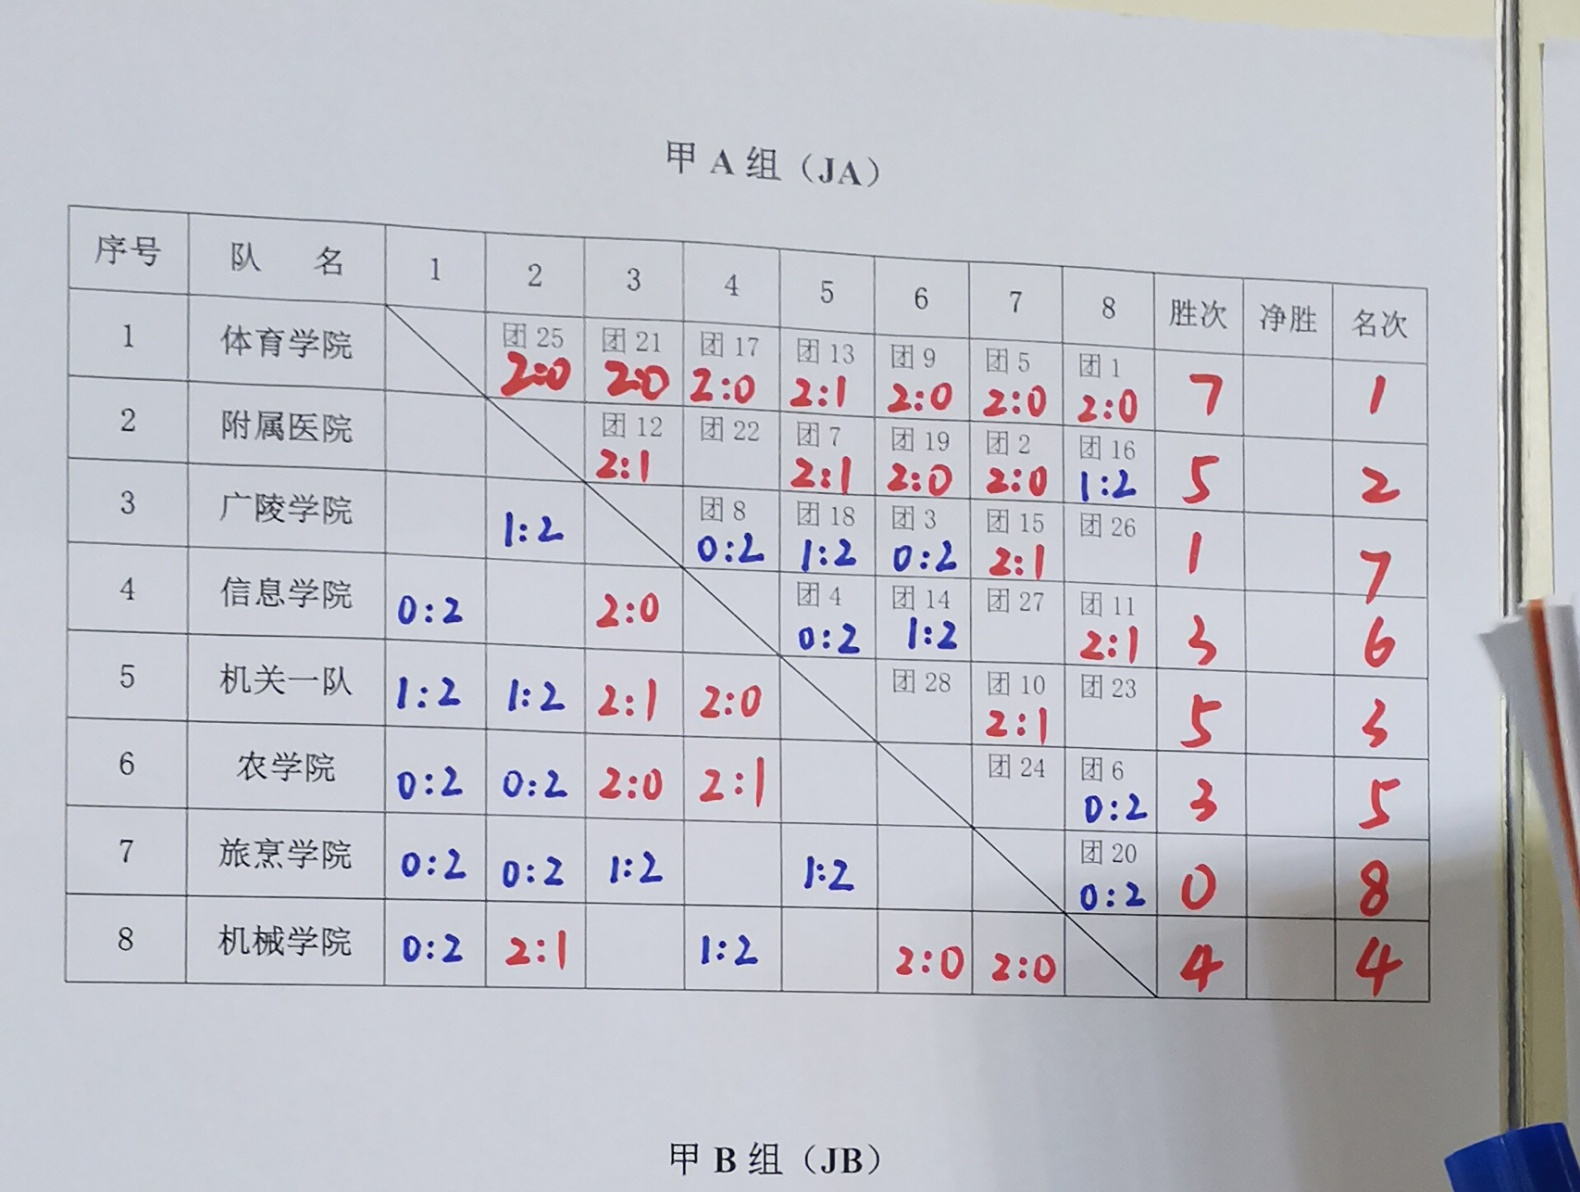 甲 A 组（JA）
序号 队 名 1 2 3 4 5 6 7 8 胜次 净胜 名次
1 体育学院 团 25 2:0 团 21 2:0 团 17 2:0 团 13 2:1 团 9 2:0 团 5 2:0 团 1 2:0 7 1
2 附属医院 团 12 2:1 团 22 团 7 2:1 团 19 2:0 团 2 2:0 团 16 1:2 5 2
3 广陵学院 1:2 团 8 0:2 团 18 1:2 团 3 0:2 团 15 2:1 团 26 1 7
4 信息学院 0:2 2:0 团 4 0:2 团 14 1:2 团 27 团 11 2:1 3 6
5 机关一队 1:2 1:2 2:1 2:0 团 28 团 10 2:1 团 23 5 3
6 农学院 0:2 0:2 2:0 2:1 团 24 团 6 0:2 3 5
7 旅烹学院 0:2 0:2 1:2 1:2 团 20 0:2 0 8
8 机械学院 0:2 2:1 1:2 2:0 2:0 4 4
甲 B 组（JB）